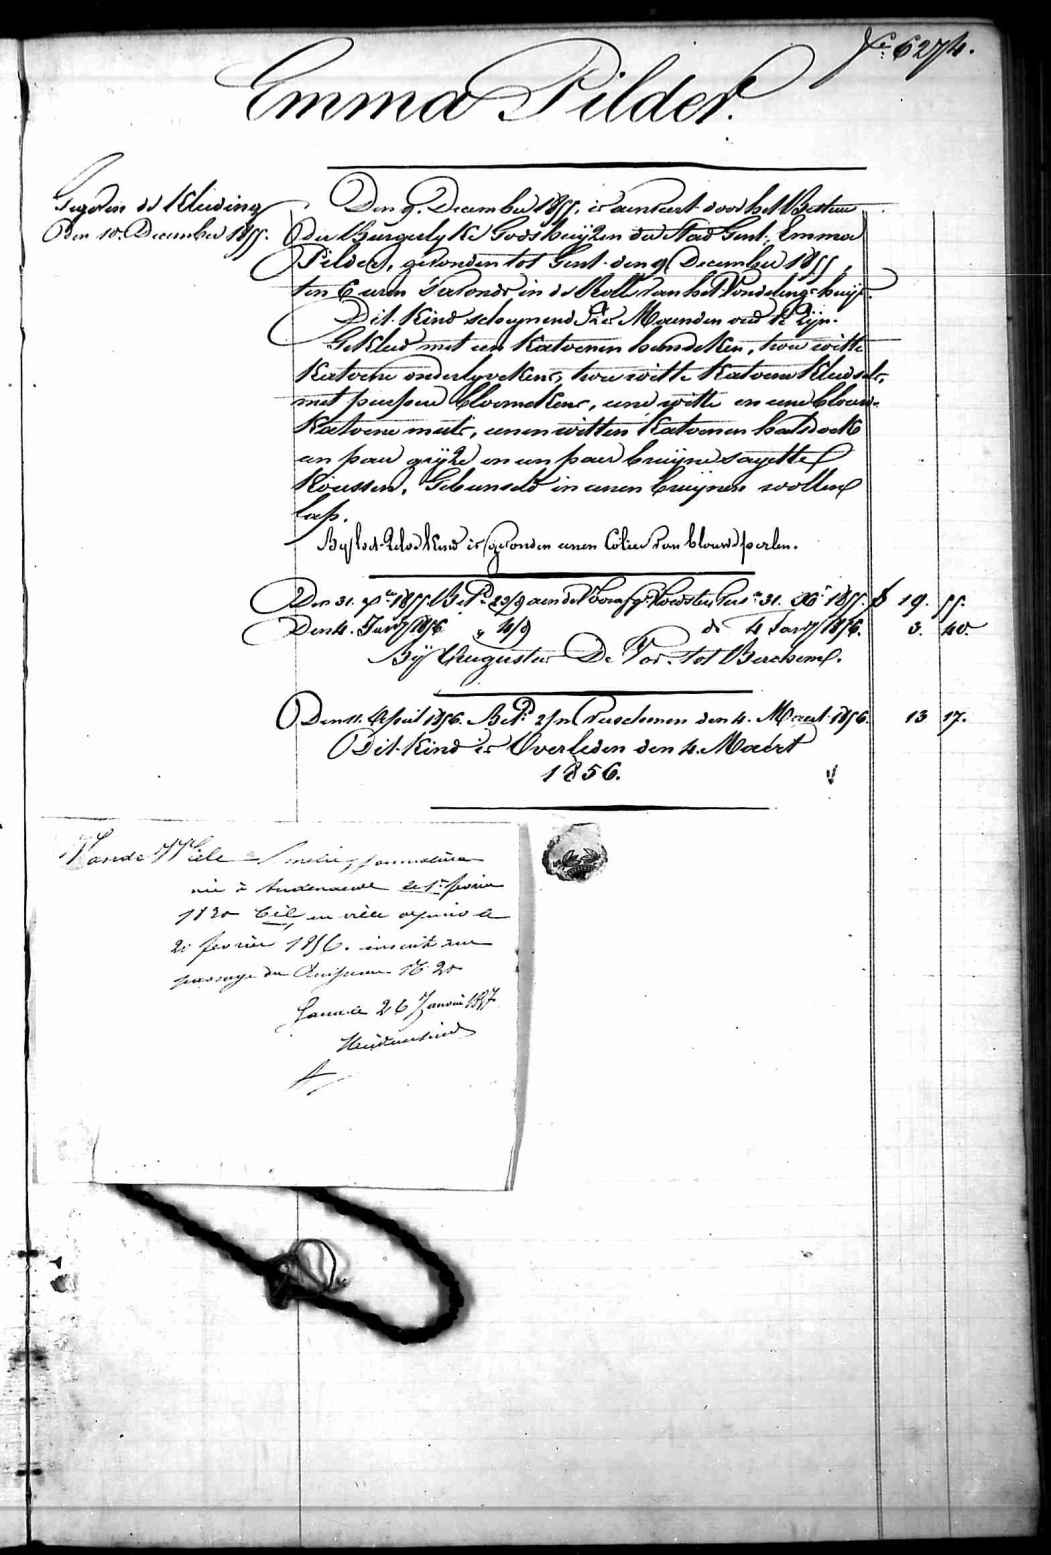 Nº 6274.
Emma Pilder.
Gegeven de Kleeding
Den 10. December 1855.
Den 9. December 1855, is aenveert door het Bestuur
der Burgerlyke Godshuyzen der Stad Gent, Emma
Pilder, gevonden tot Gent den 9 December 1855,
ten 6 uren s'avonds in de Rolle van het Vondelingshuys.
Dit Kind schynend Maenden oud te Zyn.
Gekleed met een Katoenen hemdeken, twee witte
Katoene onderlyvekens, twee witte Katoene Kleedsels,
met purpere bloemekens, eene witte en eene blauw-
Katoene muts, eenen witten Katoenen halsdoek
een paer gryze en een paer bruyne sayette
Koussen. Gebunseld in eenen bruynen wollen
lap.
By het Zelve Kind is gevonden eenen Colier van blauwe perlen.
Den 31. Xber 1855 Bet. 23/9 aen de Voorsz. Voedster 31. Xbr 1855. 19. 55.
Den 4. Janry 1856 " 4/9 do 4 Janry 1856. 3. 40.
By Augusta De Vos. tot Berchem.
Den 11. April 1856. Bet. verschenen den 4. Maert 1856. 13 17.
Dit Kind is Overleden den 4. Maert
1856.
Vande Wiele
née à Audenaerde le 1er février
1820 Cél. en ville depuis le
20 février 1856. inscrite rue
passage du 16. 20
26 Janvier 1857